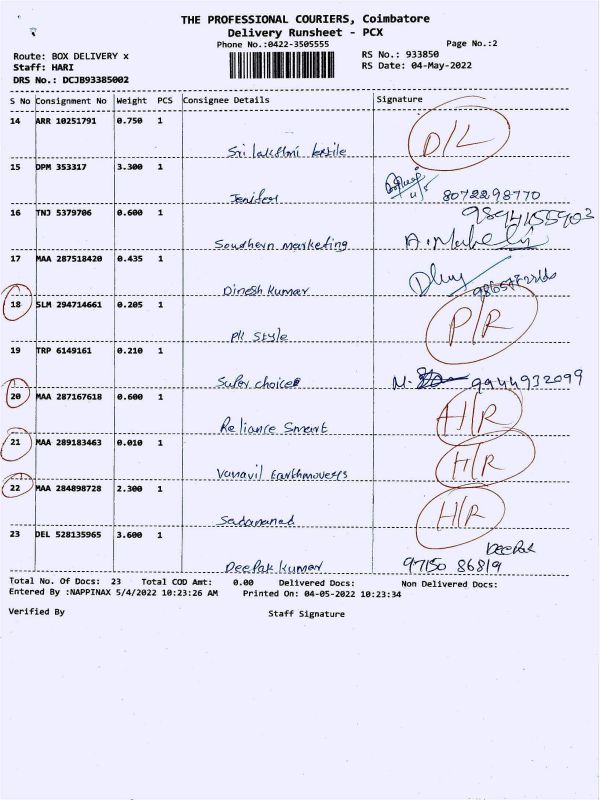 THE PROFESSIONAL COURIERS, Coimbatore
Delivery Runsheet - PCX
Phone No.:0422-3505555
Page No.:2
Route: BOX DELIVERY x
RS No.: 933850
Staff: HARI
RS Date: 04-May-2022
DRS No.: DCJB93385002
S No Consignment No Weight PCS Consignee Details Signature
14 ARR 10251791 0.750 1
Sri lakshmi textile D/L
15 DPM 353317 3.300 1
Jenifer 8072298770
16 TNJ 5379706 0.600 1
9894155903
Southern marketing
17 MAA 287518420 0.435 1
Dinesh Kumar
18 SLM 294714661 0.205 1
PK Style P/R
19 TRP 6149161 0.210 1
Super choice 9944932099
20 MAA 287167618 0.600 1
Reliance Smart H/R
21 MAA 289183463 0.010 1
Vanavil Earthmovers H/R
22 MAA 284898728 2.300 1
Sadamanad H/R
23 DEL 528135965 3.600 1
Deepak
Deepak kumar 97150 86819
Total No. Of Docs: 23 Total COD Amt: 0.00 Delivered Docs: Non Delivered Docs:
Entered By :NAPPINAX 5/4/2022 10:23:26 AM Printed On: 04-05-2022 10:23:34
Verified By Staff Signature